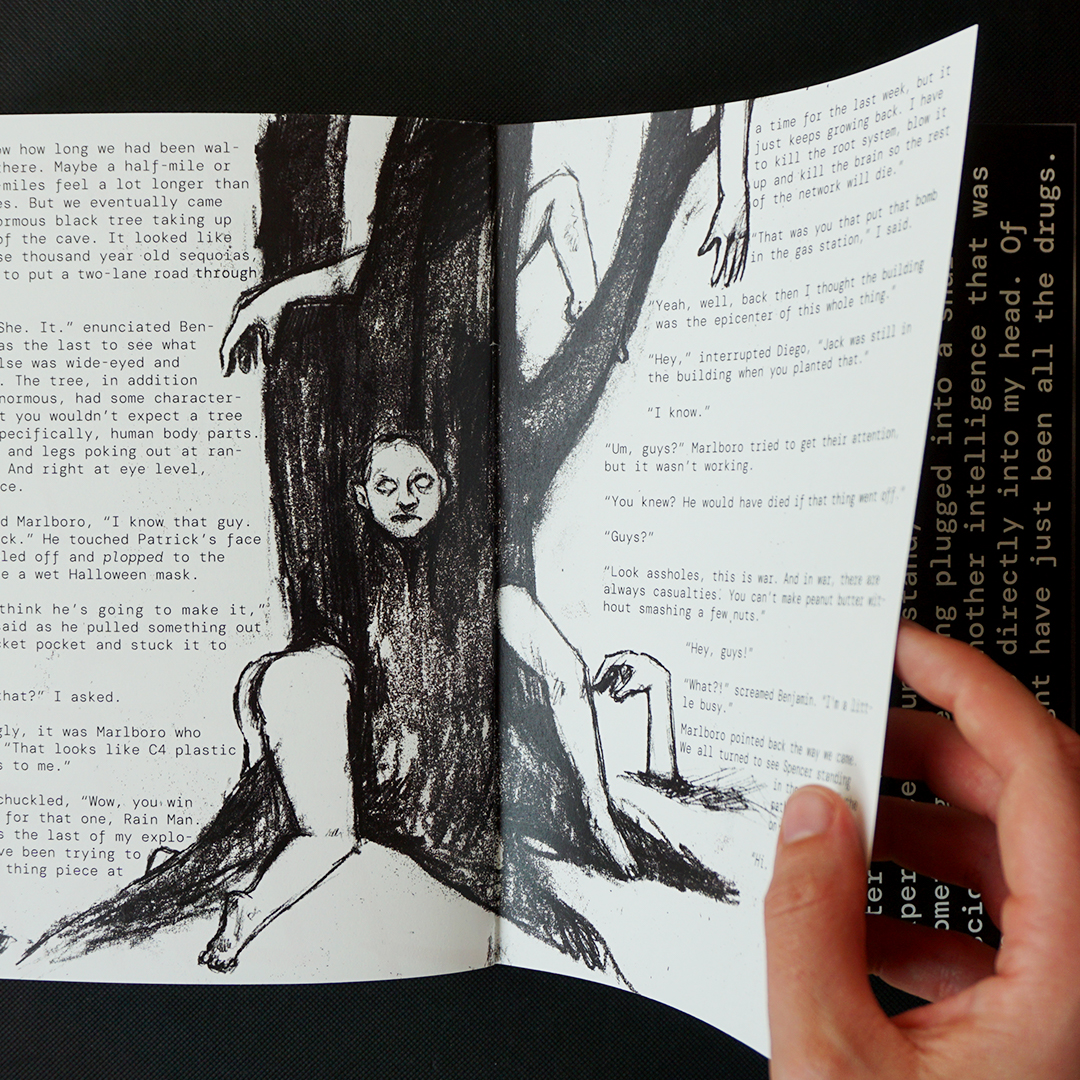 ow how long we had been wal-
there. Maybe a half-mile or
-miles feel a lot longer than
es. But we eventually came
ormous black tree taking up
of the cave. It looked like
se thousand year old sequoias,
to put a two-lane road through
She. It.” enunciated Ben-
as the last to see what
lse was wide-eyed and
. The tree, in addition
normous, had some character-
t you wouldn’t expect a tree
pecifically, human body parts.
and legs poking out at ran-
And right at eye level,
ce.
d Marlboro, “I know that guy.
ck.” He touched Patrick’s face
led off and plopped to the
e a wet Halloween mask.
think he’s going to make it,”
said as he pulled something out
cket pocket and stuck it to
that?” I asked.
gly, it was Marlboro who
“That looks like C4 plastic
s to me.”
chuckled, “Wow, you win
for that one, Rain Man.
s the last of my explo-
ve been trying to
thing piece at
a time for the last week, but it
just keeps growing back. I have
to kill the root system, blow it
up and kill the brain so the rest
of the network will die.”
“That was you that put that bomb
in the gas station,” I said.
“Yeah, well, back then I thought the building
was the epicenter of this whole thing.”
“Hey,” interrupted Diego, “Jack was still in
the building when you planted that.”
“I know.”
“Um, guys?” Marlboro tried to get their attention,
but it wasn’t working.
“You knew? He would have died if that thing went off.”
“Guys?”
“Look assholes, this is war. And in war, there are
always casualties. You can’t make peanut butter wit-
hout smashing a few nuts.”
“Hey, guys!”
“What?!” screamed Benjamin. “I’m a litt-
le busy.”
Marlboro pointed back the way we came.
We all turned to see Spencer standing
in th
“Hi
ng plugged into a
nother intelligence that was
directly into my head. Of
ht have just been all the drugs.